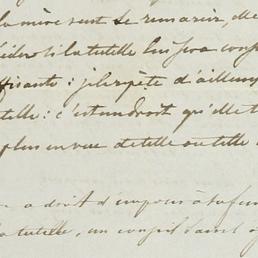 la mère veut se remarier, elle
si la tutelle lui sera cons
ffisante : je répète d'ailleurs
telle : c'est un droit qu'elle t
plus en vue de telle ou telle
a droit d'imposer à sa fem
la tutelle, un conseil sans